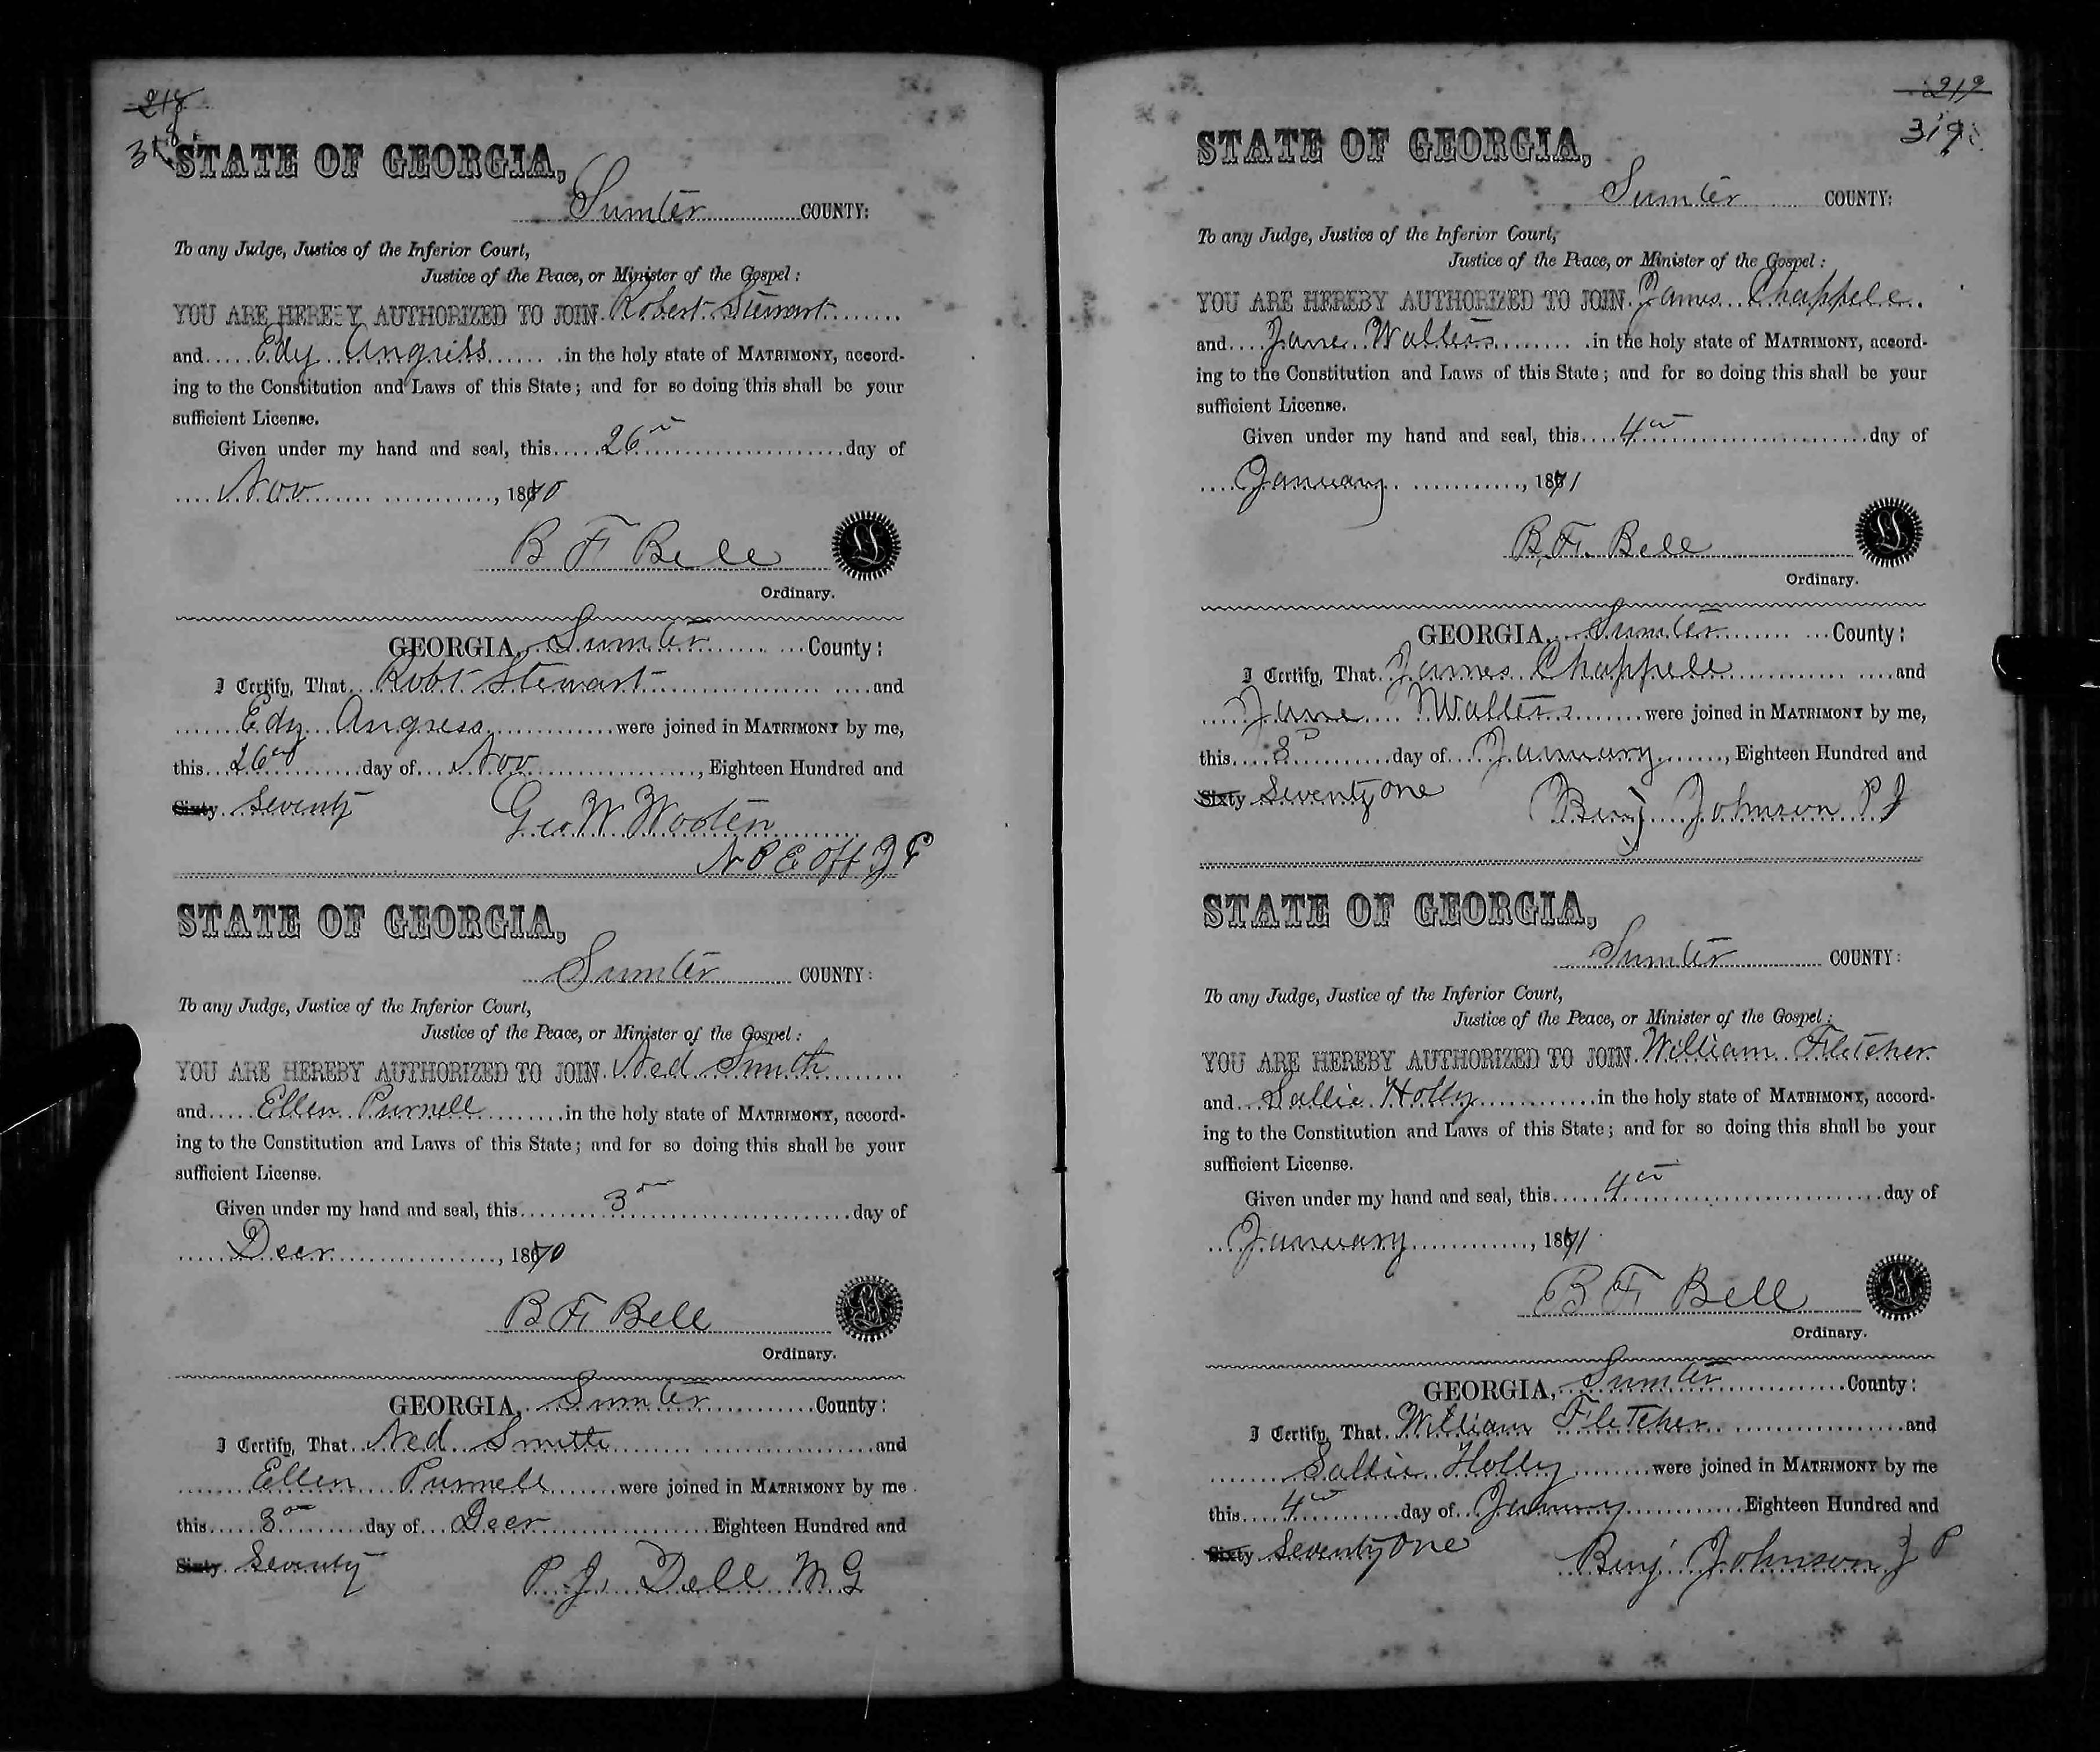 218
318
STATE OF GEORGIA,
Sumter COUNTY:
To any Judge, Justice of the Inferior Court,
Justice of the Peace, or Minister of the Gospel:
YOU ARE HEREBY AUTHORIZED TO JOIN Robert Stewart
and Edy Angriss in the holy state of MATRIMONY, accord-
ing to the Constitution and Laws of this State; and for so doing this shall be your
sufficient License.
Given under my hand and seal, this 26th day of
Nov, 1870
B F Bell
Ordinary.
GEORGIA, Sumter County:
I Certify, That Robt Stewart and
Edy Angress were joined in MATRIMONY by me,
this 26th day of Nov, Eighteen Hundred and
Sixty Seventy Geo W Wooten
N P E Off J P
STATE OF GEORGIA,
Sumter COUNTY:
To any Judge, Justice of the Inferior Court,
Justice of the Peace, or Minister of the Gospel:
YOU ARE HEREBY AUTHORIZED TO JOIN Ned Smith
and Ellen Purnell in the holy state of MATRIMONY, accord-
ing to the Constitution and Laws of this State; and for so doing this shall be your
sufficient License.
Given under my hand and seal, this 3 day of
Decr, 1870
B F Bell
Ordinary.
GEORGIA, Sumter County:
I Certify, That Ned Smith and
Ellen Purnell were joined in MATRIMONY by me
this 3 day of Decr Eighteen Hundred and
Sixty Seventy P. J. Dell M G
219
319
STATE OF GEORGIA,
Sumter COUNTY:
To any Judge, Justice of the Inferior Court,
Justice of the Peace, or Minister of the Gospel:
YOU ARE HEREBY AUTHORIZED TO JOIN James Chappele
and Jane Walters in the holy state of MATRIMONY, accord-
ing to the Constitution and Laws of this State; and for so doing this shall be your
sufficient License.
Given under my hand and seal, this 4th day of
January, 1871
B. F. Bell
Ordinary.
GEORGIA, Sumter County:
I Certify, That James Chappele and
Jane Walters were joined in MATRIMONY by me,
this 8 day of January, Eighteen Hundred and
Sixty Seventy one Benj Johnson P J
STATE OF GEORGIA,
Sumter COUNTY:
To any Judge, Justice of the Inferior Court,
Justice of the Peace, or Minister of the Gospel:
YOU ARE HEREBY AUTHORIZED TO JOIN William Fletcher
and Sallie Holly in the holy state of MATRIMONY, accord-
ing to the Constitution and Laws of this State; and for so doing this shall be your
sufficient License.
Given under my hand and seal, this 4th day of
January, 1871
B F Bell
Ordinary.
GEORGIA, Sumter County:
I Certify, That William Fletcher and
Sallie Holly were joined in MATRIMONY by me
this 4th day of January Eighteen Hundred and
Sixty Seventy One Benj Johnson J P